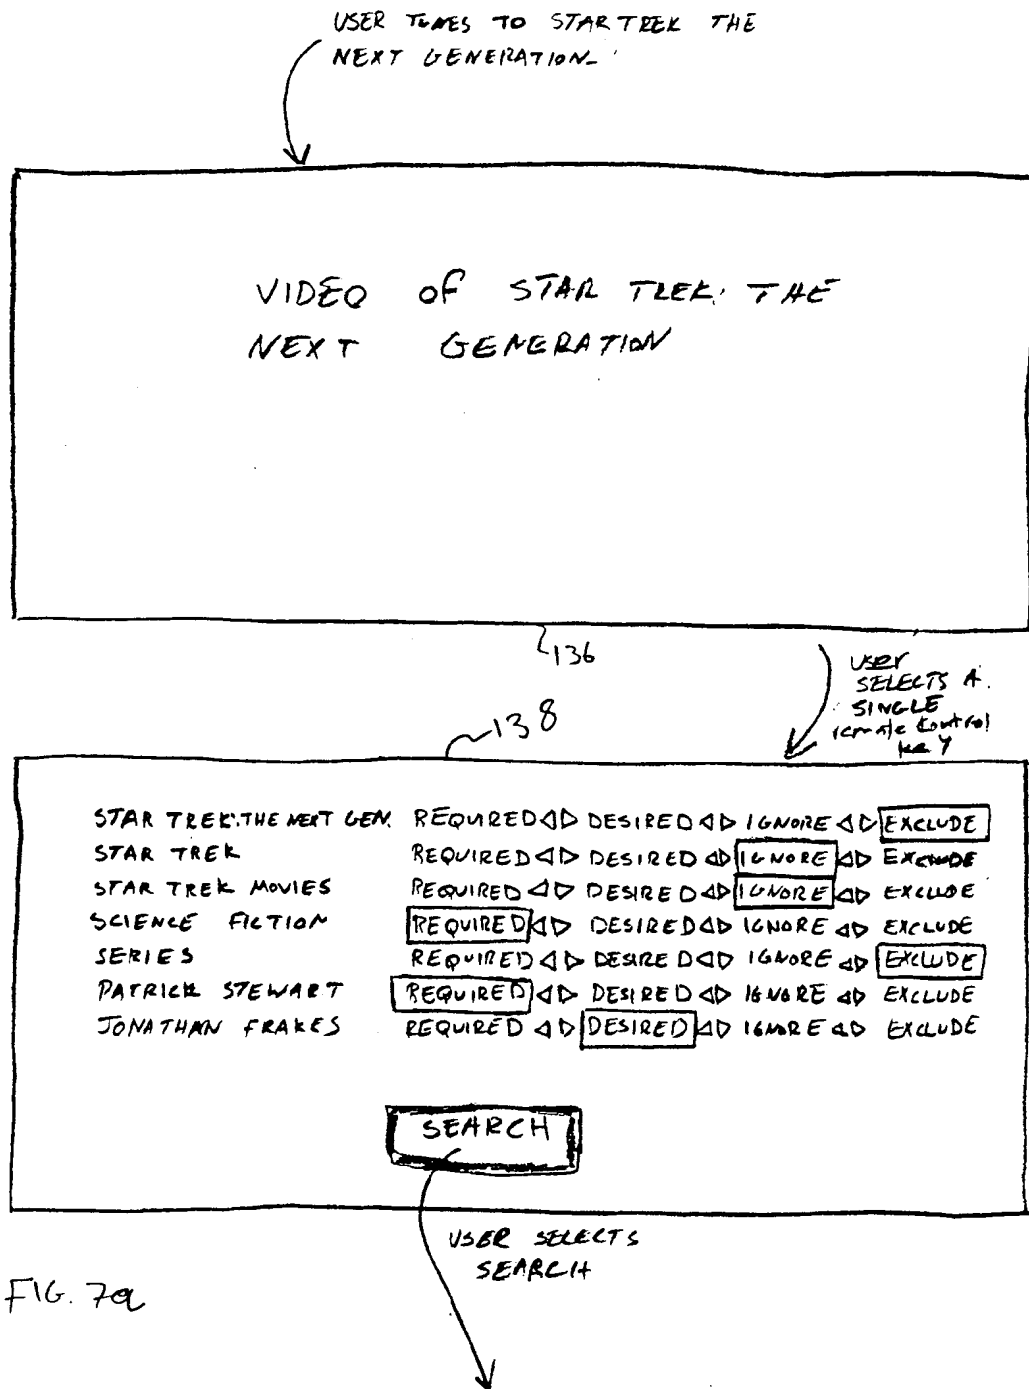 USER TUNES TO STAR TREK THE
NEXT GENERATION
VIDEO OF STAR TREK: THE
NEXT GENERATION
136
USER
SELECTS A
SINGLE
remote control
key
138
STAR TREK: THE NEXT GEN. REQUIRED ◁▷ DESIRED ◁▷ IGNORE ◁▷ EXCLUDE
STAR TREK REQUIRED ◁▷ DESIRED ◁▷ IGNORE ◁▷ EXCLUDE
STAR TREK MOVIES REQUIRED ◁▷ DESIRED ◁▷ IGNORE ◁▷ EXCLUDE
SCIENCE FICTION REQUIRED ◁▷ DESIRED ◁▷ IGNORE ◁▷ EXCLUDE
SERIES REQUIRED ◁▷ DESIRED ◁▷ IGNORE ◁▷ EXCLUDE
PATRICK STEWART REQUIRED ◁▷ DESIRED ◁▷ IGNORE ◁▷ EXCLUDE
JONATHAN FRAKES REQUIRED ◁▷ DESIRED ◁▷ IGNORE ◁▷ EXCLUDE
SEARCH
USER SELECTS
SEARCH
FIG. 7a